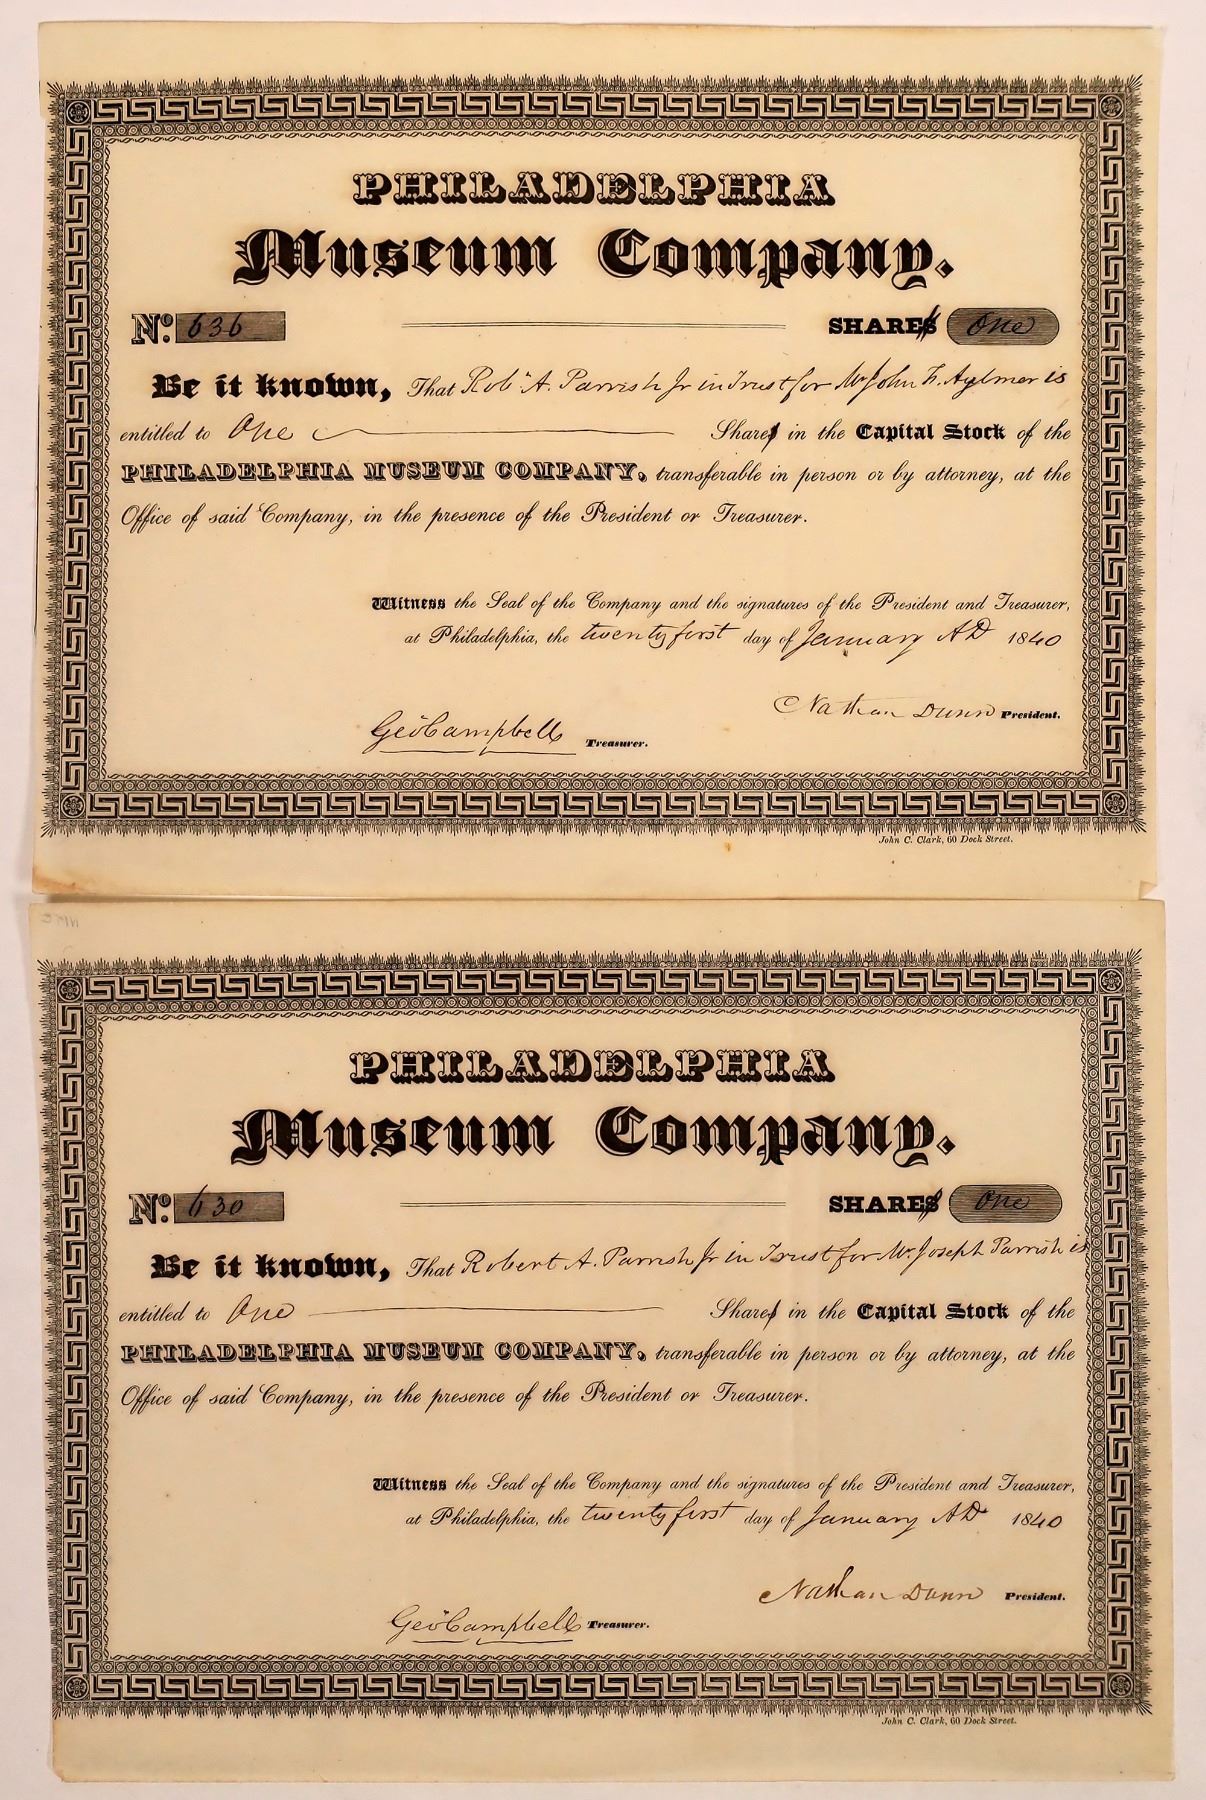 PHILADELPHIA
Museum Company.
No. 636 SHARES One
Be it known, That Robt A. Parrish Jr in Trust for Mr John F. Aylmer is
entitled to One Shares in the Capital Stock of the
PHILADELPHIA MUSEUM COMPANY, transferable in person or by attorney, at the
Office of said Company, in the presence of the President or Treasurer.
Witness the Seal of the Company and the signatures of the President and Treasurer,
at Philadelphia, the twenty first day of January AD 1840
Nathan Dunn President.
Geo Campbell Treasurer.
John C. Clark, 60 Dock Street.
PHILADELPHIA
Museum Company.
No. 630 SHARES One
Be it known, That Robert A. Parrish Jr in Trust for Mr. Joseph Parrish is
entitled to One Shares in the Capital Stock of the
PHILADELPHIA MUSEUM COMPANY, transferable in person or by attorney, at the
Office of said Company, in the presence of the President or Treasurer.
Witness the Seal of the Company and the signatures of the President and Treasurer,
at Philadelphia, the twenty first day of January AD 1840
Nathan Dunn President.
Geo Campbell Treasurer.
John C. Clark, 60 Dock Street.